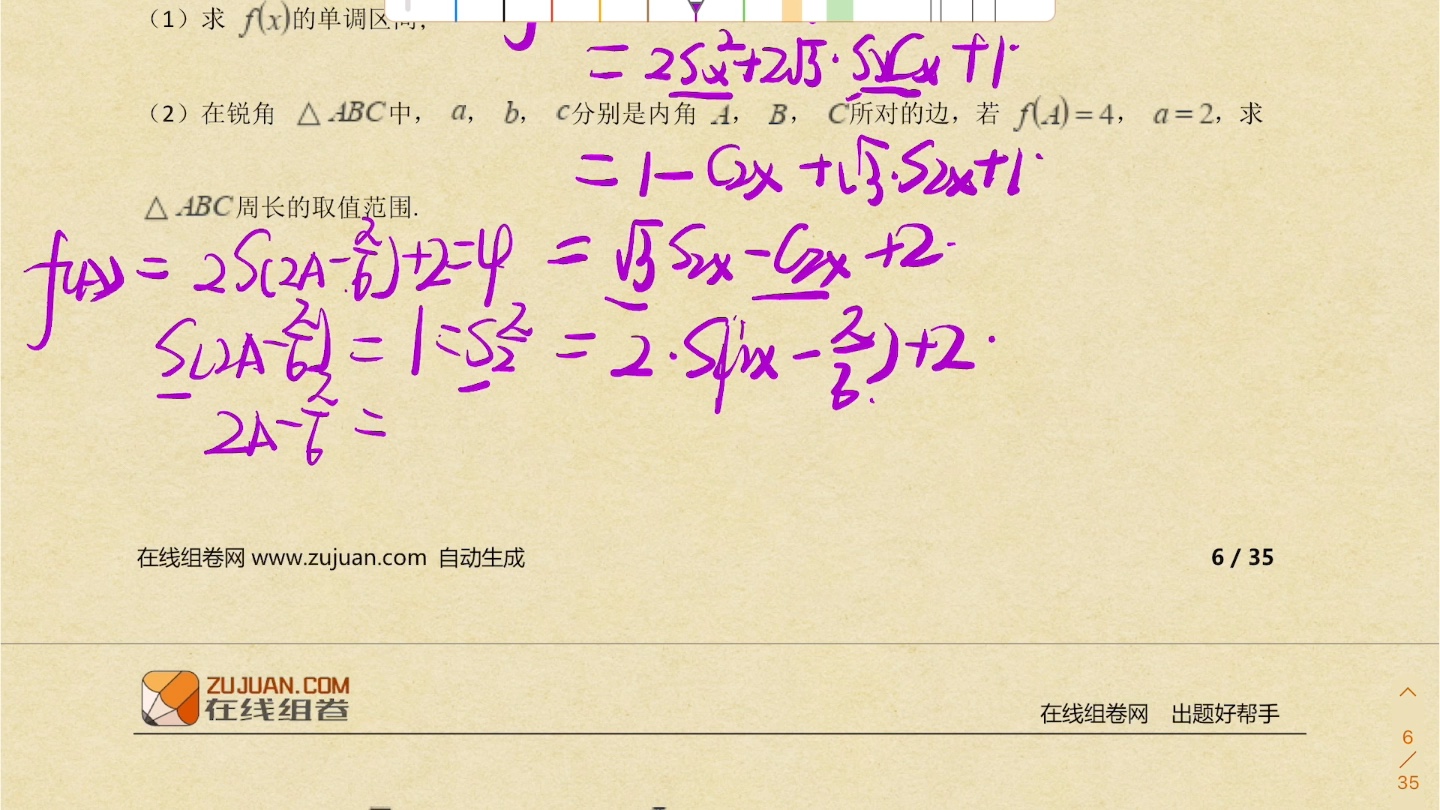 （1）求 f(x)的单调区间；
= 2Sx²+2√3·SxCx+1·
（2）在锐角 △ABC中， a， b， c分别是内角 A， B， C所对的边，若 f(A)=4， a=2，求
= 1-C2x+√3·S2x+1·
△ABC周长的取值范围.
f(A) = 2S(2A-π/6)+2=4 = √3S2x-C2x+2·
S(2A-π/6) = 1=Sπ/2 = 2·S(2x-π/6)+2·
2A-π/6 =
在线组卷网 www.zujuan.com 自动生成 6 / 35
ZUJUAN.COM
在线组卷
在线组卷网 出题好帮手
6
/
35